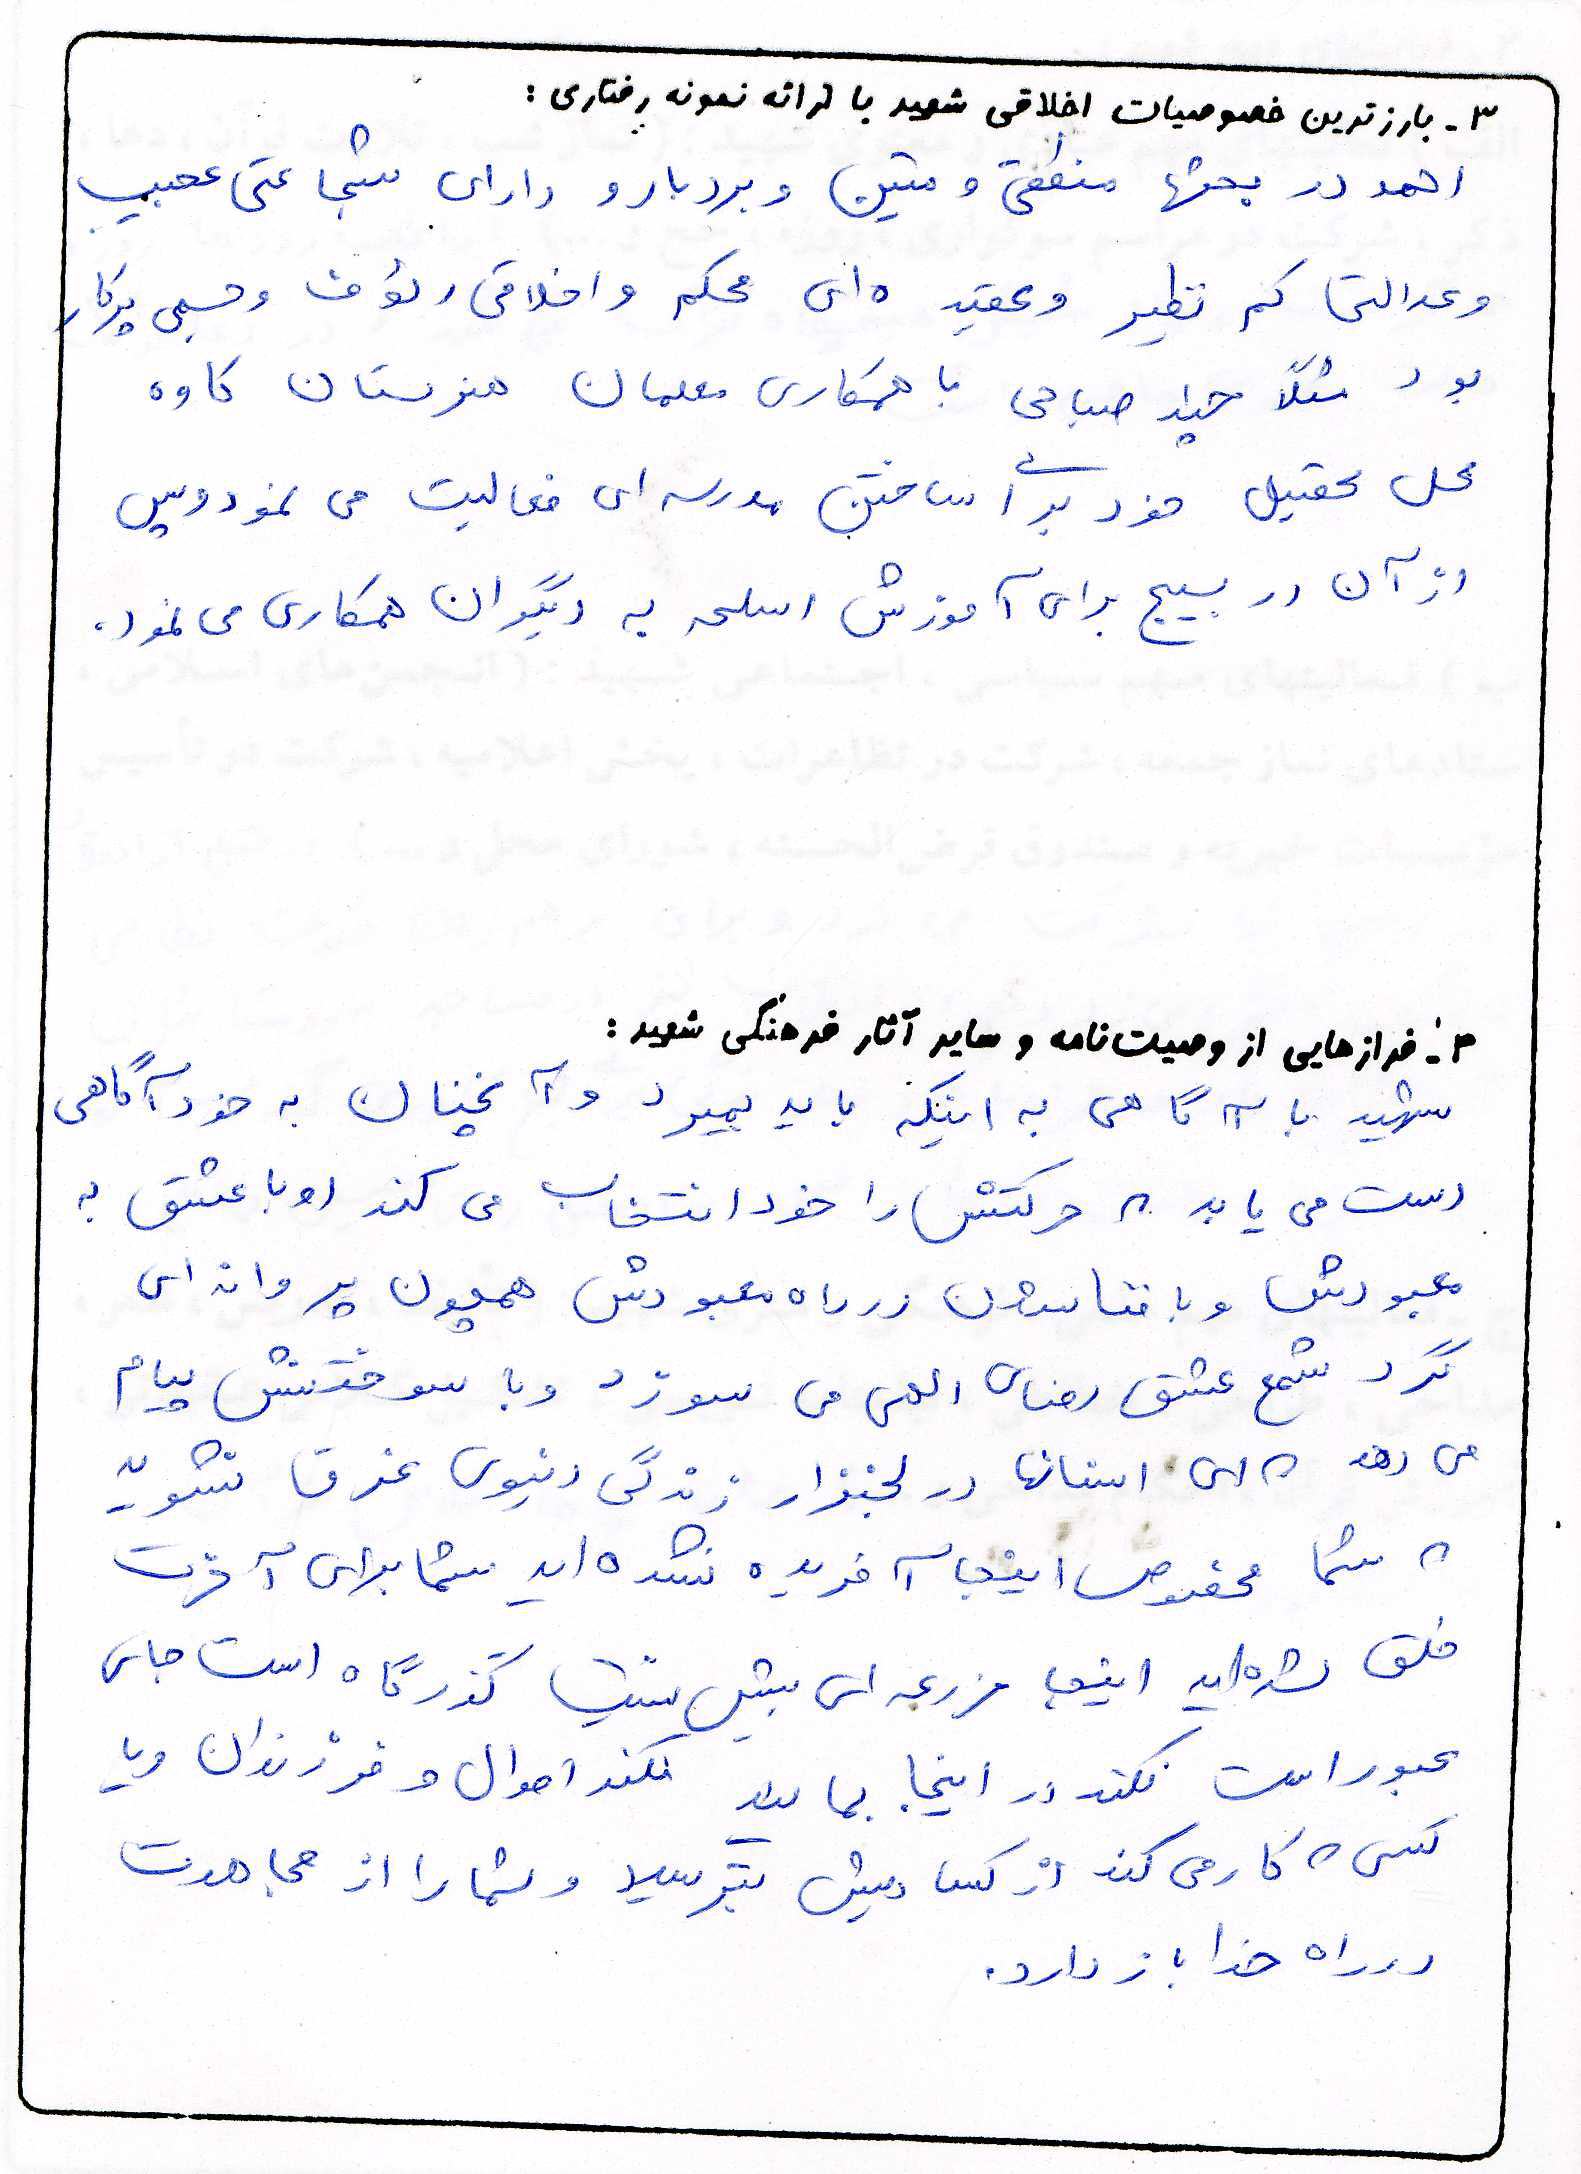 ۳ - بارزترین خصوصیات اخلاقی شهید با ارائه نمونه رفتاری :
احمد در بحثها منطقی و متین و بردبار و دارای شجاعتی عجیب
وعدالتی کم نظیر وعقیده ای محکم واخلاقی رئوف و جسمی پرکار
بود مثلاً چند صباحی با همکاری معلمان هنرستان کاوه
محل تحصیل خود برای ساختن مدرسه ای فعالیت می نمود و پس
از آن در بسیج برای آموزش اسلحه به دیگران همکاری می نمود.
۴ - فرازهایی از وصیت‌نامه و سایر آثار فرهنگی شهید :
شهید با آگاهی به اینکه باید بمیرد و آنچنان به خودآگاهی
دست می یابد که حرکتش را خود انتخاب می کند او با عشق به
معبودش و با فنا شدن در راه معبودش همچون پروانه ای
گرد شمع عشق رضای الهی می سوزد وبا سوختنش پیام
می دهد که ای انسانها در لجنزار زندگی دنیوی غرق نشوید
که شما مخصوص اینجا آفریده نشده اید شما برای آخرت
خلق شده اید اینجا مزرعه ای بیش نیست گذرگاه است جای
عبور است نکند در اینجا بمانید نکند اموال و فرزندان ویا
کسی که کار می کند از کسادیش بترسید و شما را از مجاهدت
در راه خدا باز دارد.